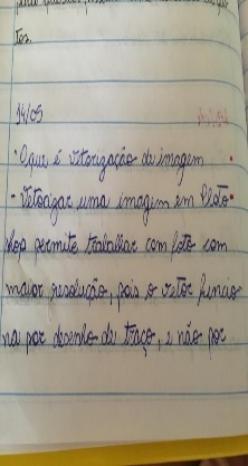 tos.
14/05
• O que é vitorização de imagem
- Vetorizar uma imagem em Photo
shop permite trabalhar com foto com
maior resolução, pois o vetor funcio
na por desenho de traço, e não por